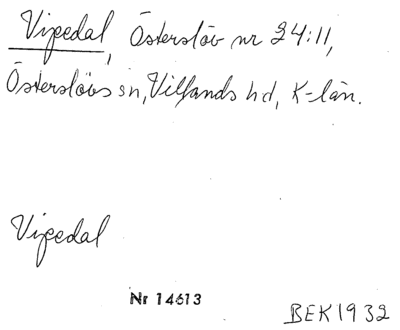 Vipedal, Österslöv nr 24:11,
Österslövs sn, Villands hd, K-län.
Vipedal
Nr 14613
BEK1932